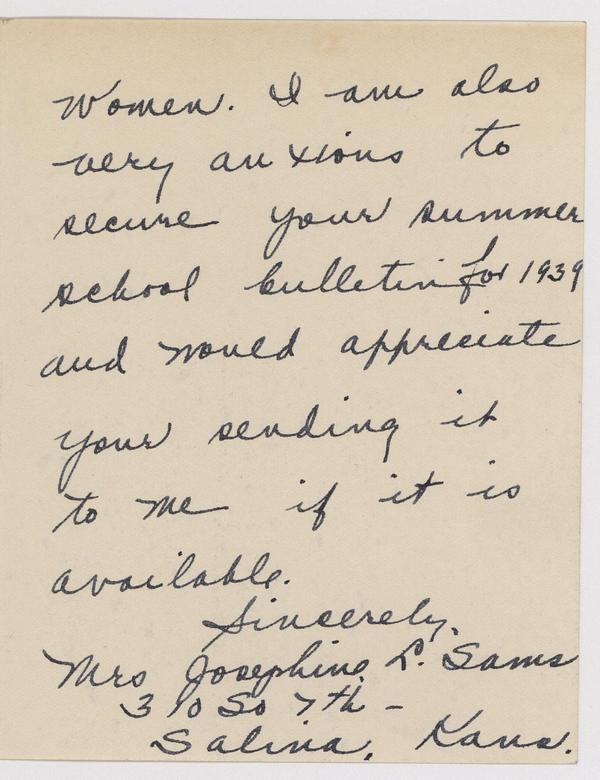 Women. I am also
very anxious to
secure your summer
school bulletin for 1939
and would appreciate
your sending it
to me if it is
available.
Sincerely,
Mrs Josephine L. Sams
310 So 7th -
Salina, Kans.